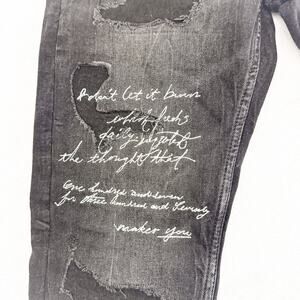 I don't let it burn
which feeds
daily
the thoughts that
One hundred and eleven
for three hundred and seventy
makes you